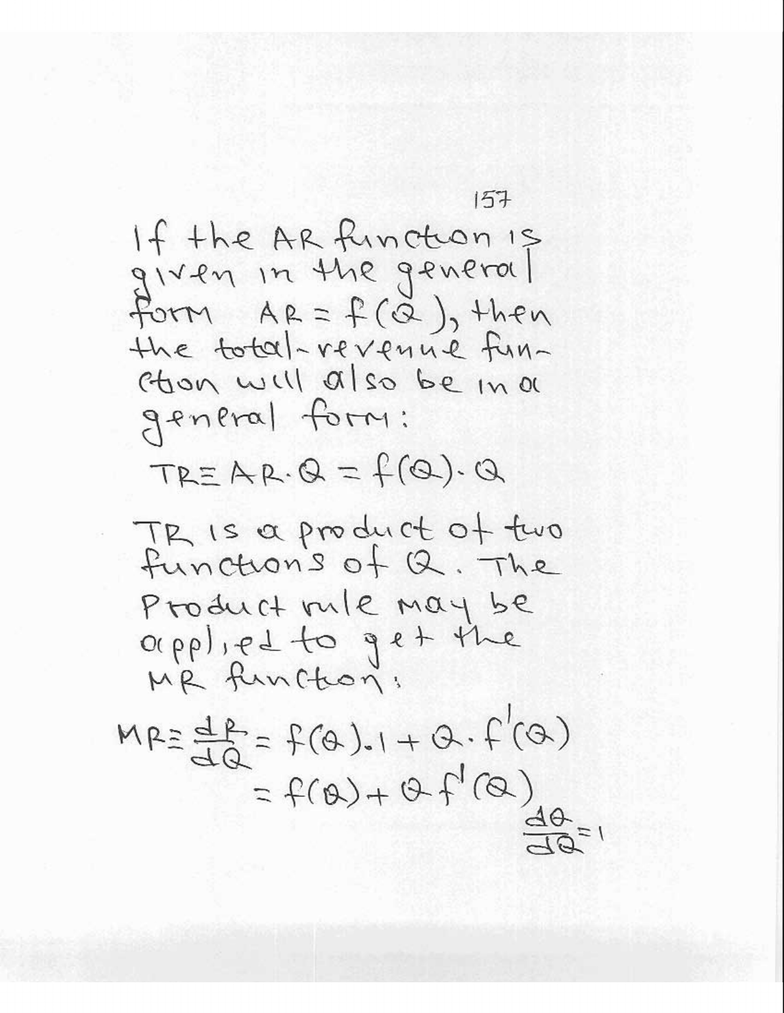 157
If the AR function is
given in the general
form AR = f(Q), then
the total-revenue fun-
ction will also be in a
general form:
TR≡ AR·Q = f(Q)·Q
TR is a product of two
functions of Q. The
Product rule may be
applied to get the
MR function:
MR≡ dR/dQ = f(Q)·1 + Q·f'(Q)
= f(Q) + Q f'(Q)
dQ/dQ = 1